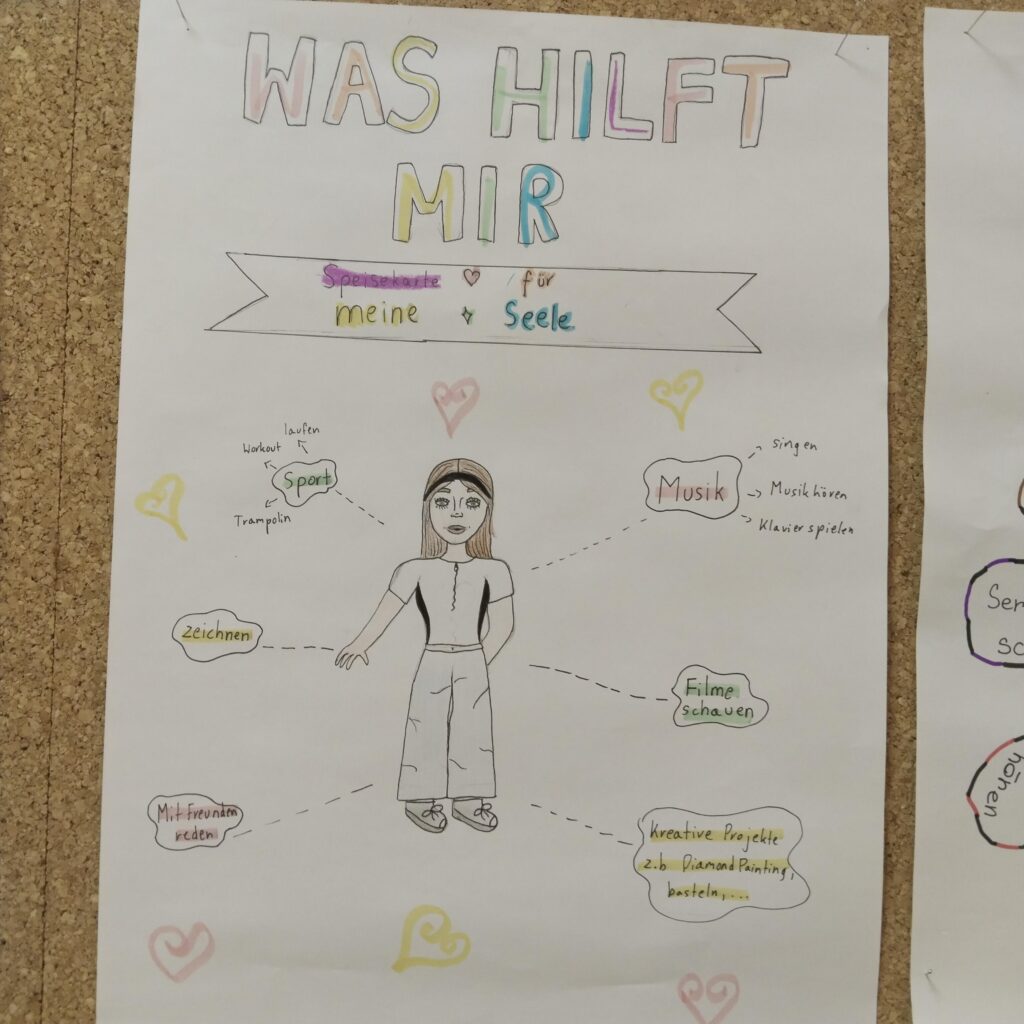 WAS HILFT
MIR
Speisekarte für
meine Seele
laufen
Workout
Sport
Trampolin
singen
Musik
Musik hören
Klavier spielen
zeichnen
Filme
schauen
Mit Freunden
reden
Kreative Projekte
z.b Diamond Painting,
basteln,...
Ser
sc
höhen